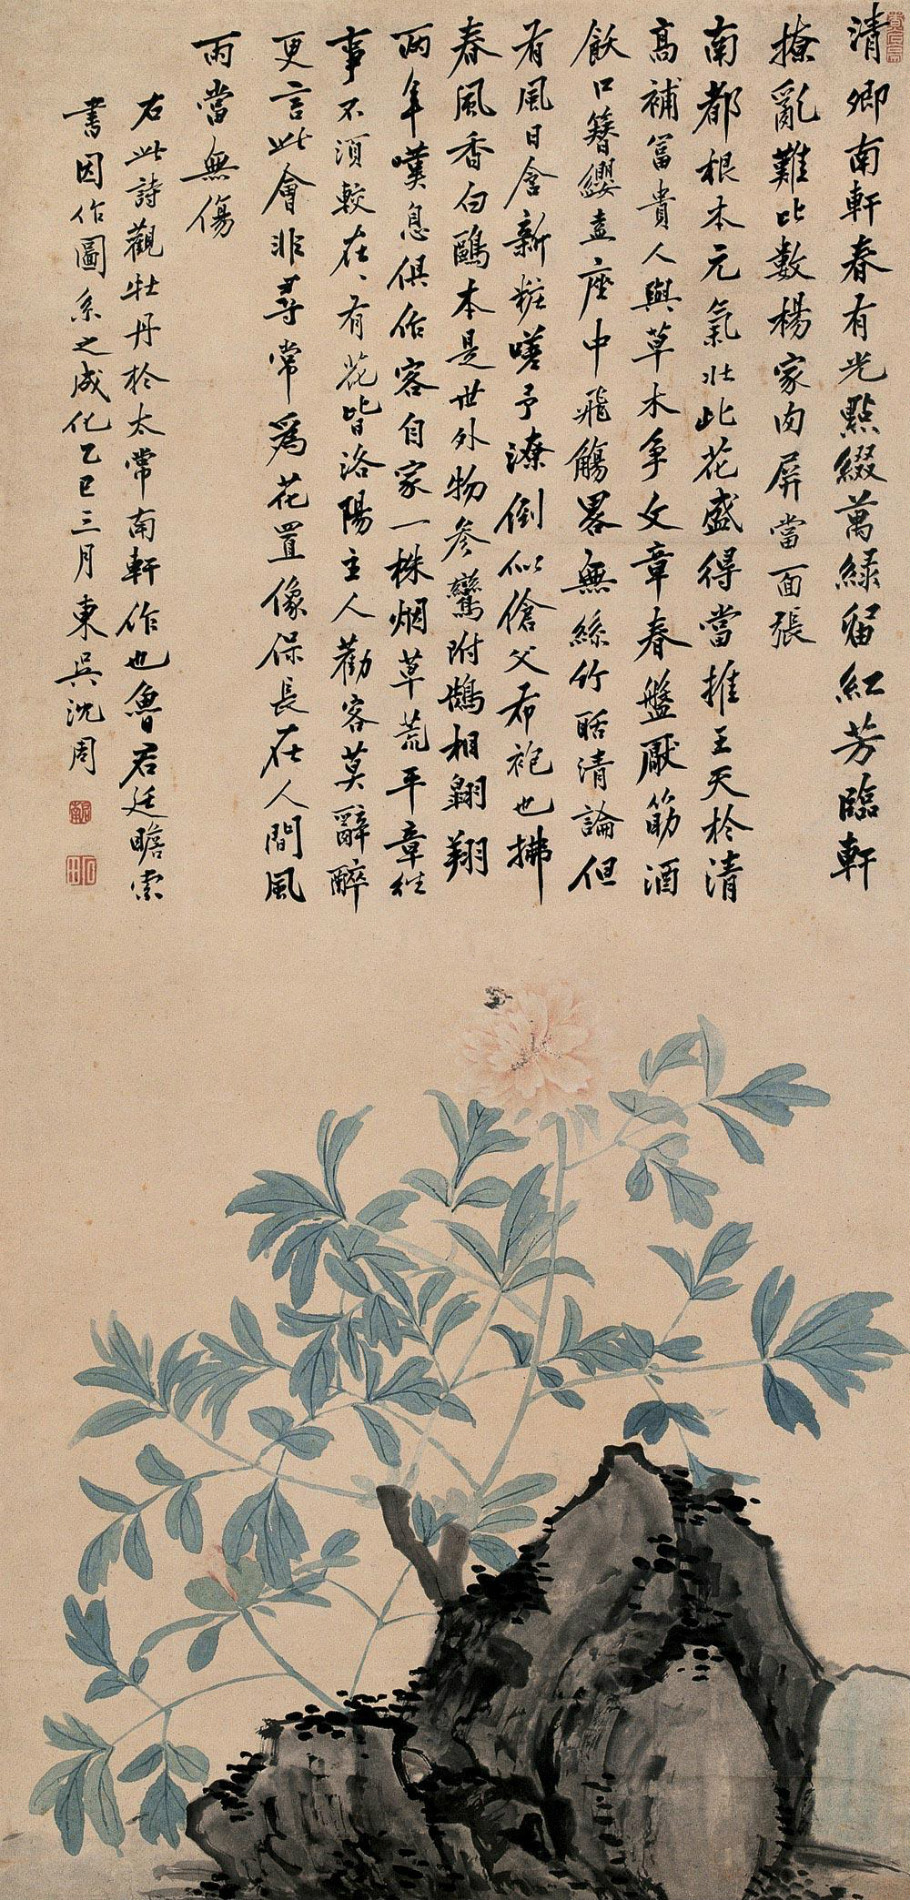 清卿南軒春有光點綴萬綠留紅芳臨軒
撩亂難比數楊家肉屏當面張
南都根本元氣壯此花盛得當推王天於清
高補富貴人與草木爭文章春盤厭筯酒
飫口簪纓盍座中飛觴畧無絲竹聒清論但
有風日含新粧嗟予潦倒似傖父布袍也拂
春風香白鷗本是世外物參鸞附鵠相翱翔
兩年嘆息俱作客自家一株烟草荒平章往
事不須較在在有花皆洛陽主人勸客莫辭醉
更言此會非尋常為花置像保長在人間風
雨當無傷
右此詩觀牡丹於太常南軒作也魯君廷瞻索
書因作圖系之成化乙巳三月東吳沈周